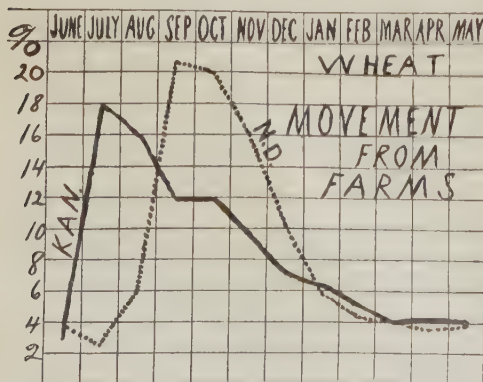 % JUNE JULY AUG SEP OCT NOV DEC JAN FEB MAR APR MAY
20
18
16
14
12
10
8
6
4
2
WHEAT
MOVEMENT
FROM
FARMS
KAN
N.D.